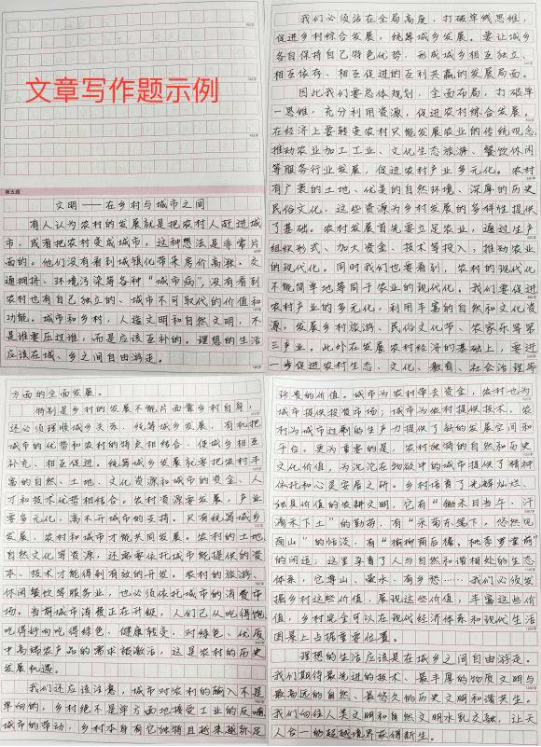 文章写作题示例
第五题
文明——在乡村与城市之间
有人认为农村的发展就是把农村人赶进城
市，或者把农村变成城市，这种想法是非常片
面的。他们没有看到城镇化带来房价高涨、交
通拥挤、环境污染等各种“城市病”，没有看到
农村也有自己独立的、城市不可取代的价值和
功能。城市和乡村，人造文明和自然文明，不
是谁要压过谁，而是应该互补的。理想的生活
应该在城、乡之间自由游走。
我们必须站在全局高度，打破单线思维，
促进乡村综合发展，统筹城乡发展。要让城乡
各自保持自己特色优势，形成城乡相互独立、
相互依存、相互促进的互利共赢的发展局面。
因此我们要总体规划，全面布局，打破单
一思维，充分利用资源，促进农村综合发展。
在经济上要转变农村只能发展农业的传统观念，
推动农业加工工业、文化生态旅游、餐饮休闲
等服务行业发展，促进农村产业多元化。农村
有广袤的土地、优美的自然环境、深厚的历史
民俗文化，这些资源为乡村发展的多样性提供
了基础。农村发展首先要立足农业，通过生产
组织形式、加大资金、技术等投入，推动农业
的现代化。同时我们也要看到，农村的现代化
不能简单地等同于农业的现代化。我们要促进
农村产业的多元化，利用丰富的自然和文化资
源，发展乡村旅游、民俗文化节、农家乐等第
三产业。此外在发展农村经济的基础上，要进
一步促进农村生态、文化、教育、社会治理等
方面的全面发展。
特别是乡村的发展不能片面靠乡村自身，
还必须理顺城乡关系，统筹城乡发展，有机把
城市的优势和农村的特点相结合，使城乡相互
补充、相互促进。统筹城乡发展就要把农村丰
富的自然、土地、文化资源和城市的资金、人
才和技术优势相结合。农村资源要发展，产业
要多元化，离不开城市的支持。只有统筹城乡
发展，农村和城市才能共同发展。农村的土地
自然文化等资源，还需要依托城市能提供的资
本、技术才能得到有效的开发。农村的旅游、
休闲餐饮等服务业，也必须依托城市的消费市
场。当前城市消费正在升级，人们已从吃得饱
吃得好向吃得绿色、健康转变，对绿色、优质
中高端农产品的需求被激活，这是农村的历史
发展机遇。
我们还应该注意，城市对农村的输入不是
单向的，乡村绝不是单方面地接受工业的反哺
城市的带动，乡村本身有它独特且越来越弥足
珍贵的价值。城市为农村带去资金，农村也为
城市提供投资市场；城市为农村提供技术，农
村为城市过剩的生产力提供了新的发展空间和
平台。更为重要的是，农村独特的自然和历史
文化价值，为沉沦在物欲中的城市提供了精神
依托和心灵安居之所。乡村培育了光辉灿烂、
独具价值的农耕文明，它有“锄禾日当午，汗
滴禾下土”的勤劳，有“采菊东篱下，悠然见
南山”的恬淡，有“榆柳荫后檐，桃李罗堂前”
的闲适，这里孕育了人与自然和谐相处的生态
体系，它尊山、爱水、有乡愁……我们必须发
掘乡村这些价值，展现这些价值，丰富这些价
值，乡村完全可以在现代经济体系和现代生活
图景上占据重要位置。
理想的生活应该是在城乡之间自由游走。
我们期待最先进的技术、最丰厚的物质文明与
最高远的自然、最悠久的历史文明和谐共生。
我们向往人类文明和自然文明水乳交融，让天
人合一的超越境界获得新生。